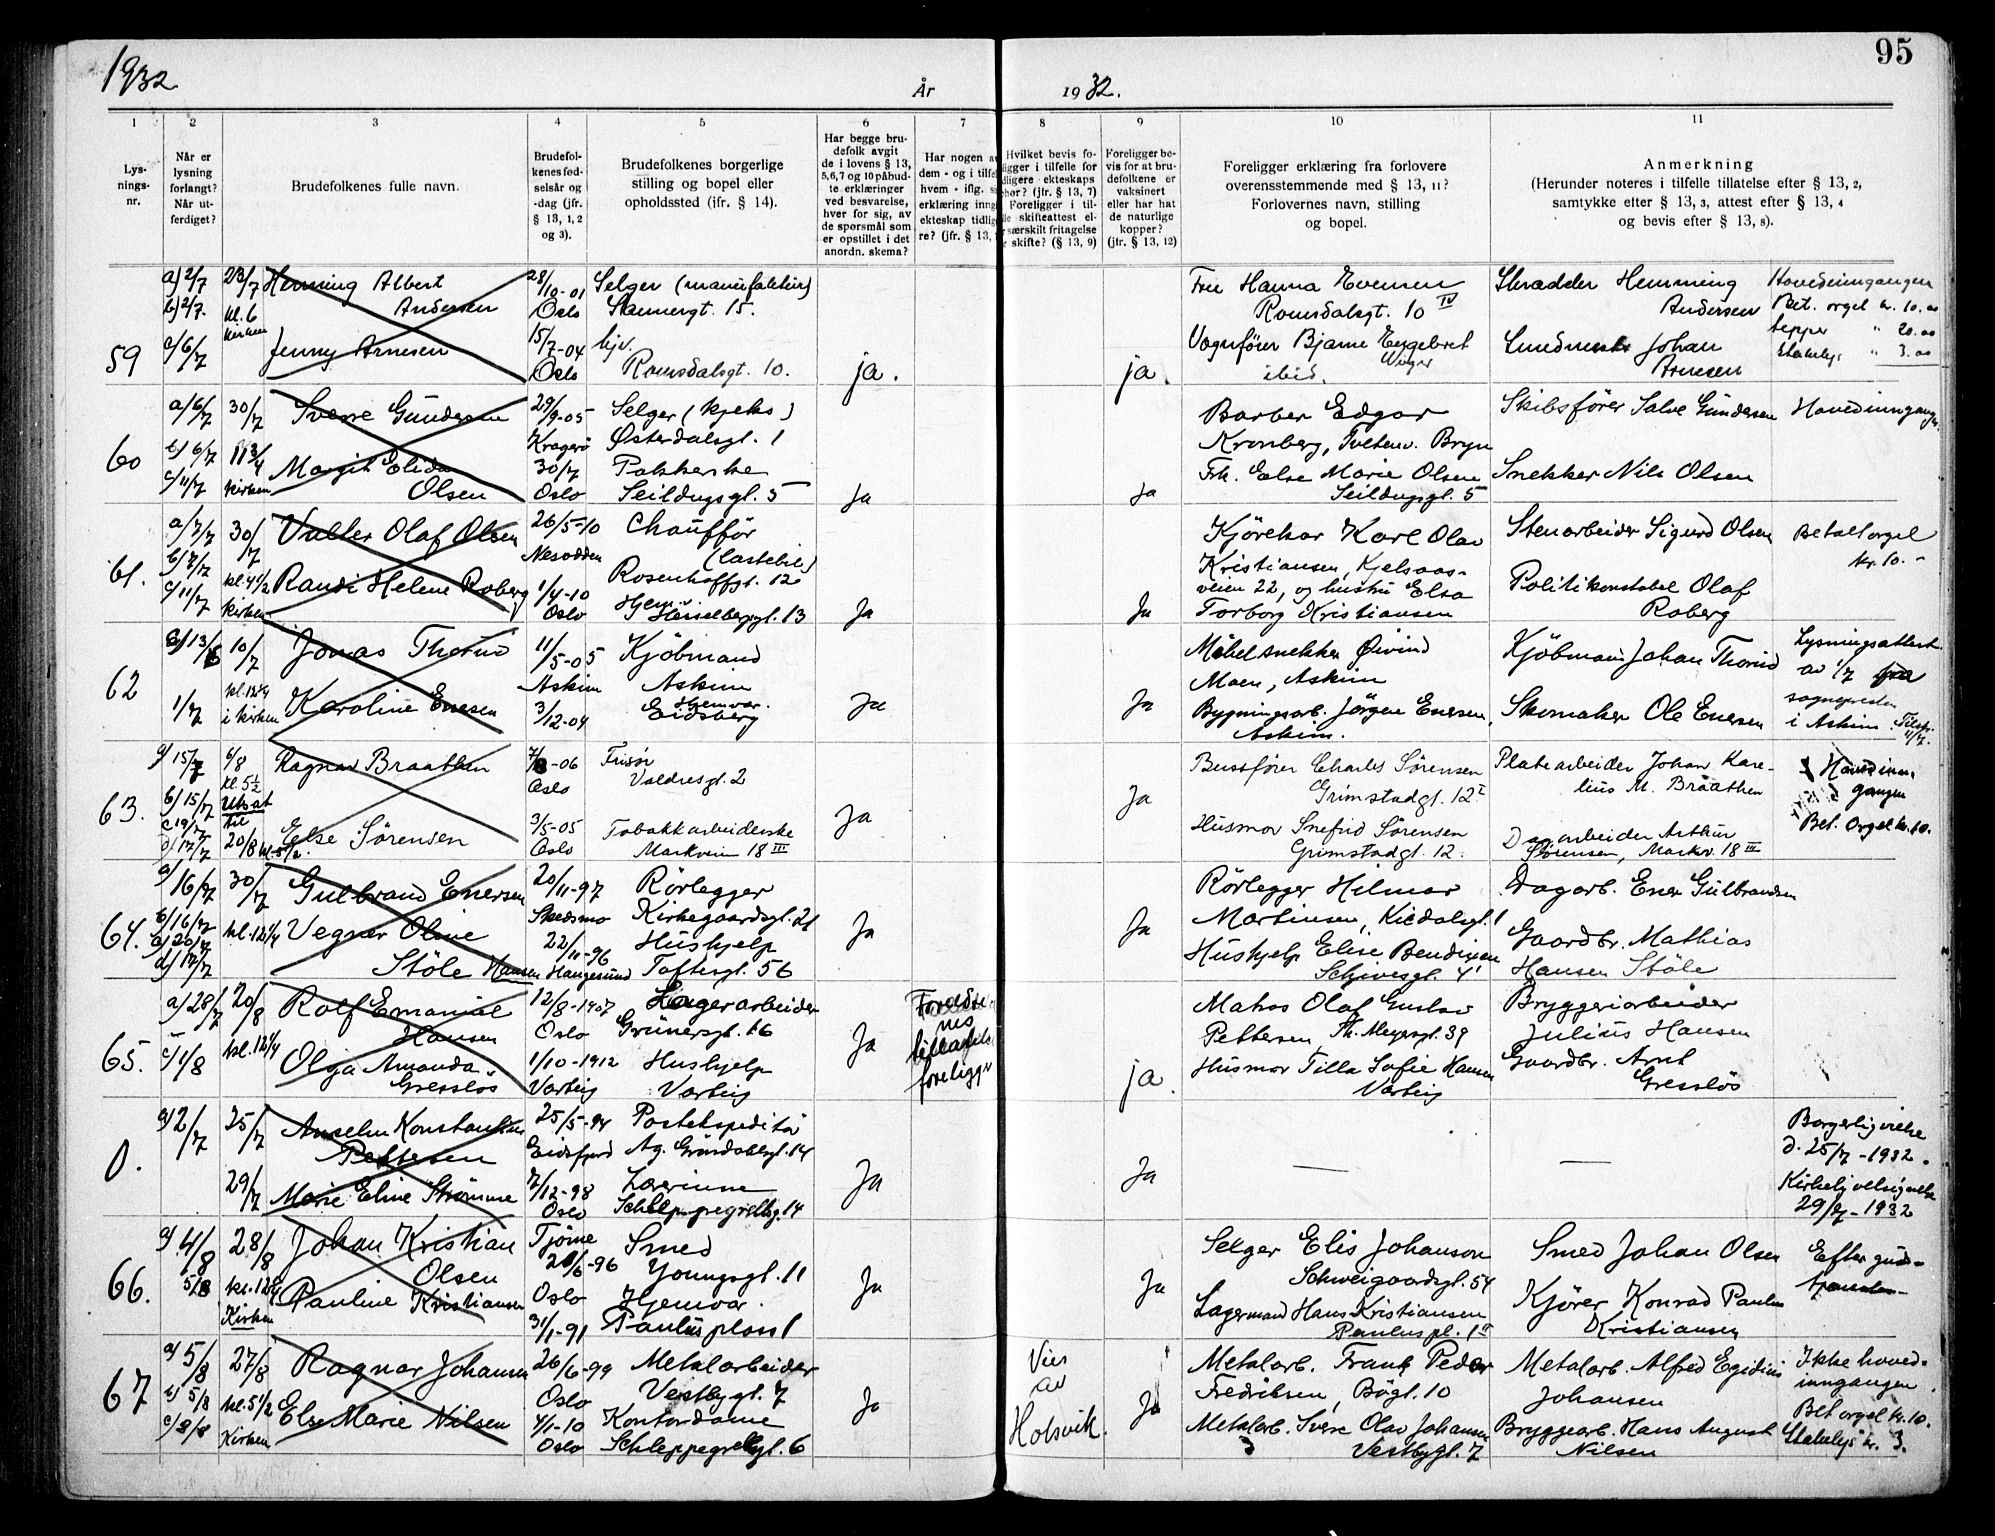 1932
År
1932.
95
1
2
3
4
5
6
7
8
9
10
11
Lys-
nings-
nr.
Når er
lysning
forlangt?
Når ut-
ferdiget?
Brudefolkenes fulle navn.
Brudefol-
kenes fød-
selsår og
-dag (jfr.
§ 13, 1, 2
og 3).
Brudefolkenes borgerlige
stilling og bopel eller
opholdssted (jfr. § 14).
Har begge bru-
defolk avgit
de i lovens § 13,
5, 6, 7 og 10 påbud-
te erklæringer
ved besvarelse,
hver for sig, av
de spørsmål som
er opstillet i det
anordn. skema?
Har nogen a
dem - og i tilfe
hvem - iflg.
erklæring inng
ekteskap tidlig
re? (jfr. § 13,
Hvilket bevis fo-
ligger i tilfelle for
dligere ekteskaps
hør? (jfr. § 13, 7)
Foreligger i til-
le skifteattest el-
særskilt fritagelse
r skifte? (§ 13, 9)
Foreligger be-
vis for at bru-
defolkene er
vaksinert
eller har hat
de naturlige
kopper?
(jfr. § 13, 12)
Foreligger erklæring fra forlovere
overensstemmende med § 13, 11?
Forlovernes navn, stilling
og bopel.
Anmerkning
(Herunder noteres i tilfelle tillatelse efter § 13, 2,
samtykke efter § 13, 3, attest efter § 13, 4
og bevis efter § 13, 8).
59
a) 2/7
b) 2/7.
c/6/7
23/7
kl. 6
kirken
Henning Albert
Andersen
Jenny Arnesen
28/10-01
Oslo
15/7-04
Oslo
Selger (manufaktur)
Sannergt. 15.
hjv.
Romsdalsgt. 10.
ja.
ja.
Fru Hanna Evensen
Romsdalsgt. 10 IV
Vognfører Bjarne Engebret
ibid.
Skrædder Hemming
Andersen
Johan
Arnesen
Hovedinngangen
Bet. orgel kr. 10.00
tepper " 20.00
" 3.00
60
a/6/7
b) 6/7
c/11/7
30/7
kirken
Sverre Gundersen
Margit Elida
Olsen
29/9-05
Kragerø
30/7
Oslo
Selger (kjeks)
Østerdalsgt. 1
Pakkerske
Seildugsgt. 5
Ja
Ja
Barber Edgar
Kronberg, Tvetenv. Bryn
Frk. Else Marie Olsen
Seildugsgt. 5
Skibsfører Salve Gundersen
Snekker Nils Olsen
Hovedinngangen
61.
a/7/7
b/7/7
c/11/7
30/7
kl. 4 1/2
kirken
Valter Olaf Olsen
Randi Helene Roberg
26/5-10
Nesodden
1/4-10
Oslo
Chauffør
(lastebil)
Rosenhoffgt. 12
Hjemv.
Hesselbergsgt. 13
Ja
Ja
Kjørekar Karl Olav
Kristiansen, Kjelsaas-
veien 22, og hustru Elsa
Torborg Kristiansen
Stenarbeider Sigurd Olsen
Politikonstabel Olaf
Roberg
Betalt orgel
kr. 10.-
62
a/13/6
1/7
10/7
kl. 12 1/4
i kirken
Jonas Thorud
Karoline Enersen
11/5-05
Askim
3/12-04
Kjøbmand
Askim
Hjemvær.
Eidsberg
Ja
Ja
Møbelsnekker Øivind
Moen, Askim
Bygningsarb. Jørgen Enersen,
Askim.
Kjøbmann Johan Thorud
Skomaker Ole Enersen
Lysningsattest
av 1/7 fra
sognepresten
i Askim
11/7.
63.
a/15/7
b/15/7
c 19/7
d/17/7
6/8
kl. 5 1/2
Utsat
til
20/8 kl. 5 1/2.
Ragnar Braathen
Else Sørensen
7/8-06
Oslo
3/5-05
Oslo
Frisør
Valdresgt. 2
Tobakkarbeiderske
Markveien 18 III
Ja
Ja
Bussfører Charles Sørensen
Grimstadgt. 12 I
Husmor Snefrid Sørensen
Grimstadgt. 12.
Platearbeider Johan Kare-
lius M. Braathen
Dagarbeider Arthur
Sørensen, Markv. 18 III
Hovedinn-
gangen
Bet. Orgel kr. 10.
64.
a/16/7
b/16/7
c) 20/7
d) 17/7
30/7
kl. 12 1/4
Gulbrand Enersen
Vegner Oline
Støle Hansen
20/11-97
Skedsmo
22/11-96
Haugesund
Rørlegger
Kirkegaardsgt. 21
Hushjelp
Toftesgt. 56
Ja
Ja
Rørlegger Hilmar
Martinsen,
Hushjelp Elise Bendixen
Schivesgt. 4'
Dagarb. Ener Gulbrandsen
Gaardbr. Mathias
Hansen Støle
65.
a/28/7
c/1/8
20/8
kl. 12 1/4
Rolf Emanuel
Hansen
Olga Amanda
Gressløs
12/8-1907
Oslo
1/10-1912
Varteig
Lagerarbeider
Grünersgt. 16
Hushjelp
Varteig
Ja
Foreldre
nes
tillatelse
foreligger
ja.
Matros Olaf Gustav
Pettersen, Th. Meyersgt. 39
Husmor Tilla Sofie Hansen
Varteig
Bryggeriarbeider
Julius Hansen
Gaardbr. Arnt
Gressløs
0.
a/2/7
25/7
29/7
Anselm Konstantin
Pettersen
Marie Eline Strømme
25/5-94
Eidsfjord
7/12-98
Oslo
Postekspeditør
Ag. Grøndahlsgt. 14
Lærerinne
Schleppegrellsg. 14
Ja
Ja
Borgerlig vielse
d. 25/7-1932.
Kirkelig velsignelse
29/7-1932
66.
a/4/8
5/8
28/8
kl. 12 1/4
Kirken
Johan Kristian
Olsen
Pauline Kristiansen
Tjøme
21/6-96
Oslo
31/1-91
Smed
Youngsgt. 11
Hjemvær.
Paulus plass 1
Ja
Ja
Selger Elis Johanson
Schweigaardsgt. 54
Lagermand Hans Kristiansen
Paulus pl. 1 II
Smed Johan Olsen
Kjører Konrad Paulus
Kristiansen
Efter guds-
tjenesten
67
a/5/8
b) 5/8
c/8/8
27/8
kl. 5 1/2
Kirken
Ragnar Johansen
Else Marie Nilsen
26/6-99
Oslo
4/1-10
Oslo
Metalarbeider
Vestbygt. 7
Kontordame
Schleppegrellsgt. 6
Ja
Vies
av
Holsvik.
Ja
Metalarb. Frank Peder
Fredriksen, Bøgt. 10
Metalarb. Sverre Olav Johansen
Vestbygt. 7
Metalarb. Alfred Egidius
Johansen
Bryggearb. Hans August
Nilsen
Ikke hoved-
inngangen.
Bet orgel kr. 10.
kr. 3.